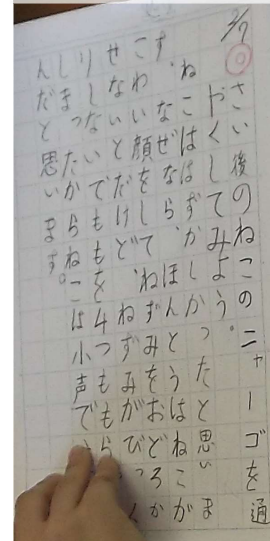 2/7
さい後のねこのニャーゴを通
やくしてみよう。
ねこははずかしかったと思いま
す。なぜならほんとうはねこが
こわい顔をして、ねずみをおどろか
せないとだけど、ねずみがびっく
りしないでももを4つもら
しまったからねこは小声で
んだと思います。